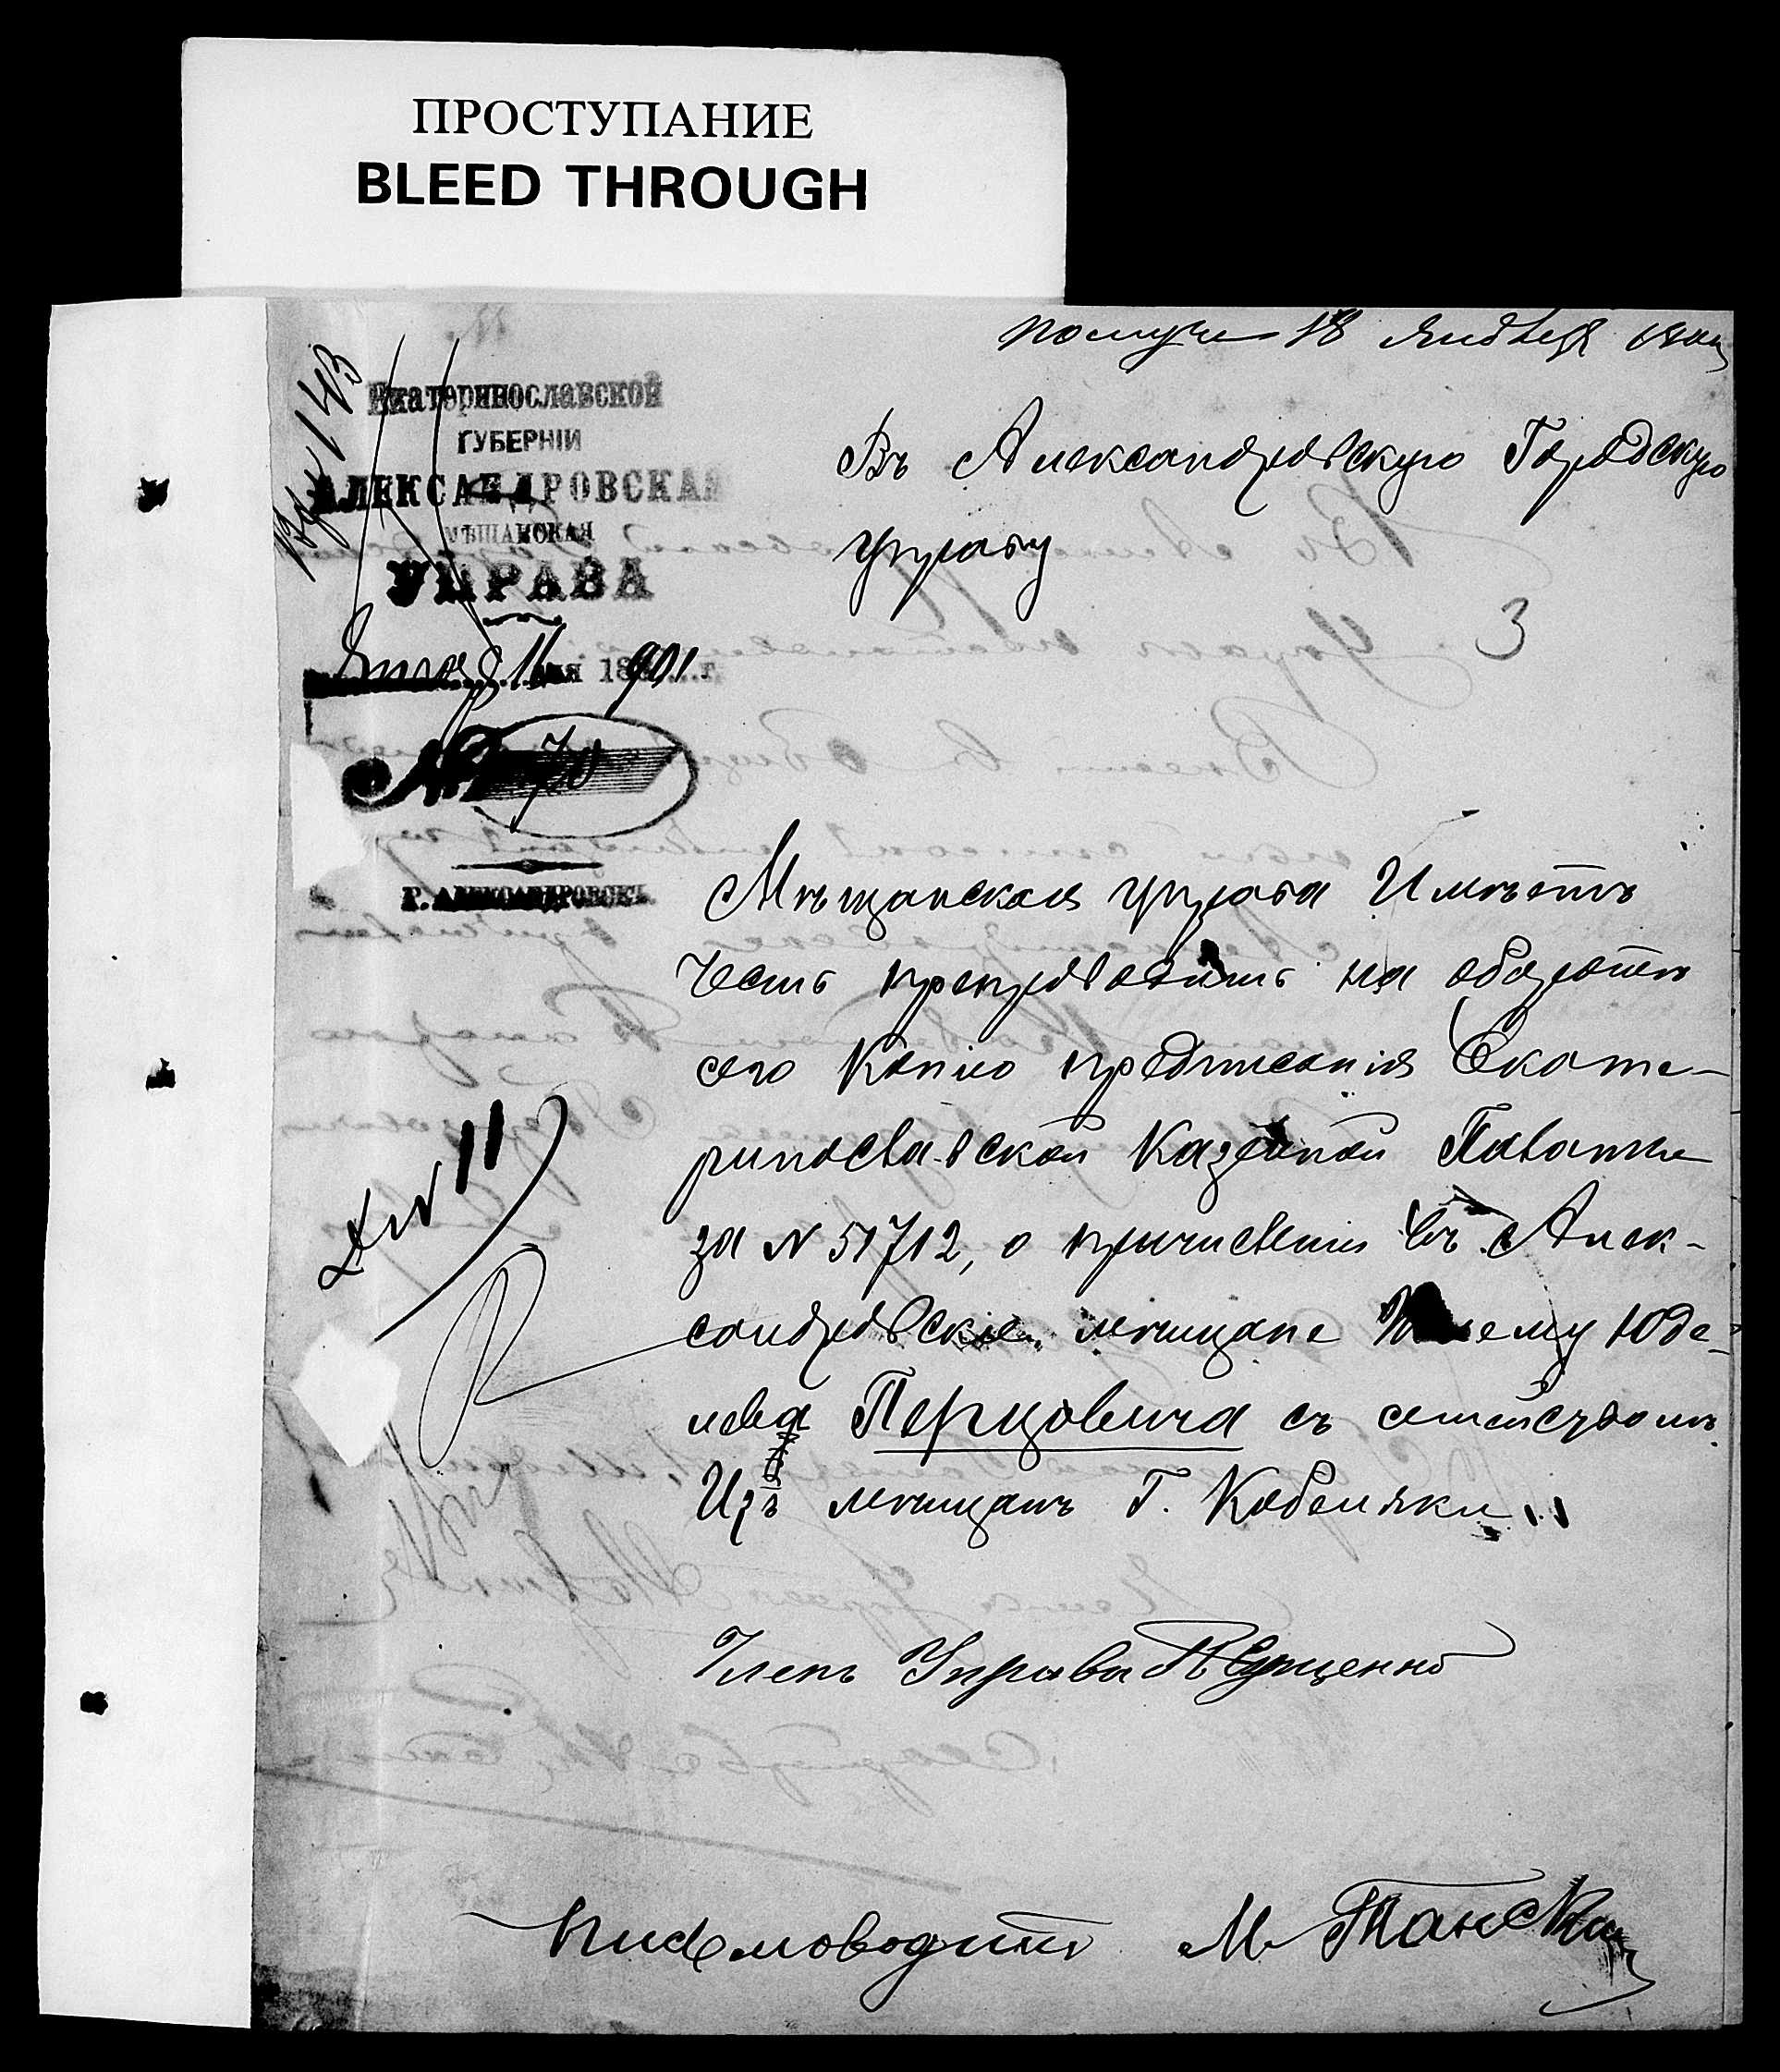 ПРОСТУПАНИЕ
BLEED THROUGH
получ 18 Января
Екатеринославской
ГУБЕРНІИ
АЛЕКСАНДРОВСКАЯ
МѢЩАНСКАЯ
УПРАВА
11 дня 1901 г.
№ 70
Г. АЛЕКСАНДРОВСКЪ
Въ Александровскую Городскую
управу
3
Мѣщанская управа Имѣетъ
честь препроводить на оборотѣ
сего Копію предписанія Екате-
ринославской Казенной Палаты
за № 51712, о причисленіи въ Алек-
сандровскіе мѣщане Юде-
лева Перцовича съ семействомъ
Изъ мѣщанъ Г. Кобеляки
№ 11
Членъ Управы
Письмоводитель М. Танскій